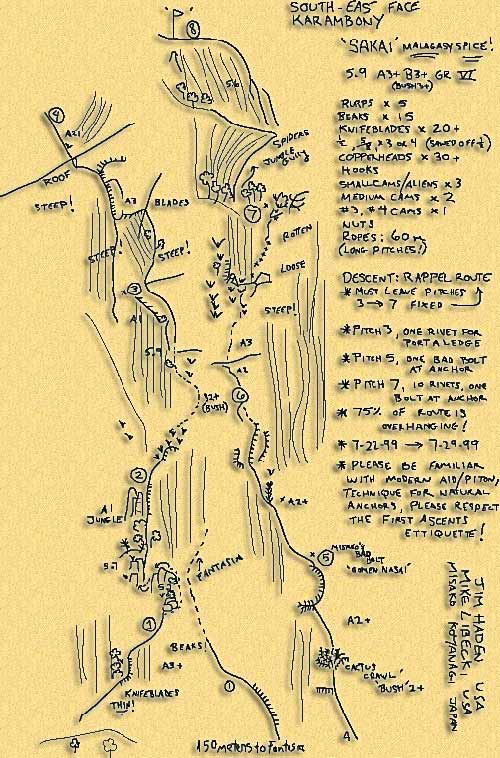 SOUTH-EAST FACE
KARAMBONY
"SAKAI" MALAGASY SPICE!
5.9 A3+ B3+, GR VI
(BUSH3+)
RURPS x 5
BEAKS x 15
KNIFEBLADES x 20+
½, 5/8 x 3 OR 4 (SAWED OFF ½)
COPPERHEADS x 30+
HOOKS
SMALL CAMS/ALIENS x 3
MEDIUM CAMS x 2
#3, #4 CAMS x 1
NUTS
ROPES: 60m
(LONG PITCHES!)
DESCENT: RAPPEL ROUTE
* MUST LEAVE PITCHES
3 → 7 FIXED
* PITCH 3, ONE RIVET FOR
PORTALEDGE
* PITCH 5, ONE BAD BOLT
AT ANCHOR
* PITCH 7, 10 RIVETS, ONE
BOLT AT ANCHOR
* 75% OF ROUTE IS
OVERHANGING!
* 7-22-99 → 7-29-99
* PLEASE BE FAMILIAR
WITH MODERN AID/PITON,
TECHNIQUE FOR NATURAL
ANCHORS, PLEASE RESPECT
THE FIRST ASCENTS
ETTIQUETTE!
JIM HADEN USA
MIKE LIBECKI, USA
MISAKO KOYANAGI JAPAN
8
5.6
SPIDERS
JUNGLE
GULLY
7
ROTTEN
LOOSE
STEEP!
A3
A2
6
A2+
5
MISAKO'S
BAD
BOLT
"GOMEN NASAI"
A2+
CACTUS
CRAWL
"BUSH" 2+
4
4
A2+
ROOF
STEEP!
A3
BLADES
STEEP!
STEEP!
3
A1
5.9
B2+
(BUSH)
2
A1
JUNGLE
5.7
FANTASIA
1
BEAKS!
A3+
KNIFEBLADES
THIN!
1
150 meters to Fantasia